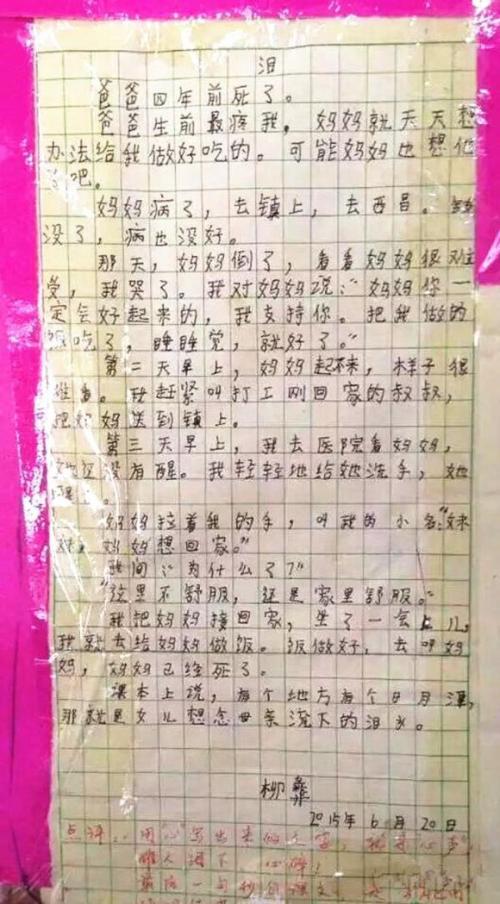 泪
爸爸四年前死了。
爸爸生前最疼我，妈妈就天天想
办法给我做好吃的。可能妈妈也想他
了吧。
妈妈病了，去镇上，去西昌。钱
没了，病也没好。
那天，妈妈倒了，看看妈妈很难
受，我哭了。我对妈妈说：“妈妈你一
定会好起来的，我支持你。把我做的
饭吃了，睡睡觉，就好了。”
第二天早上，妈妈起不来，样子很
难看。我赶紧叫打工刚回家的叔叔，
把妈妈送到镇上。
第三天早上，我去医院看妈妈，
她还没有醒。我轻轻地给她洗手，她
醒了。
妈妈拉着我的手，叫我的小名：“妹
妹，妈妈想回家。”
我问：“为什么了？”
“这里不舒服，还是家里舒服。”
我把妈妈接回家，坐了一会儿，
我就去给妈妈做饭。饭做好，去叫妈
妈，妈妈已经死了。
课本上说，有个地方有个日月潭，
那就是女儿想念母亲流下的泪水。
柳彝
2015年6月20日
点评：用“心”写出来的文字，
催人泪下 心碎；
最后一句